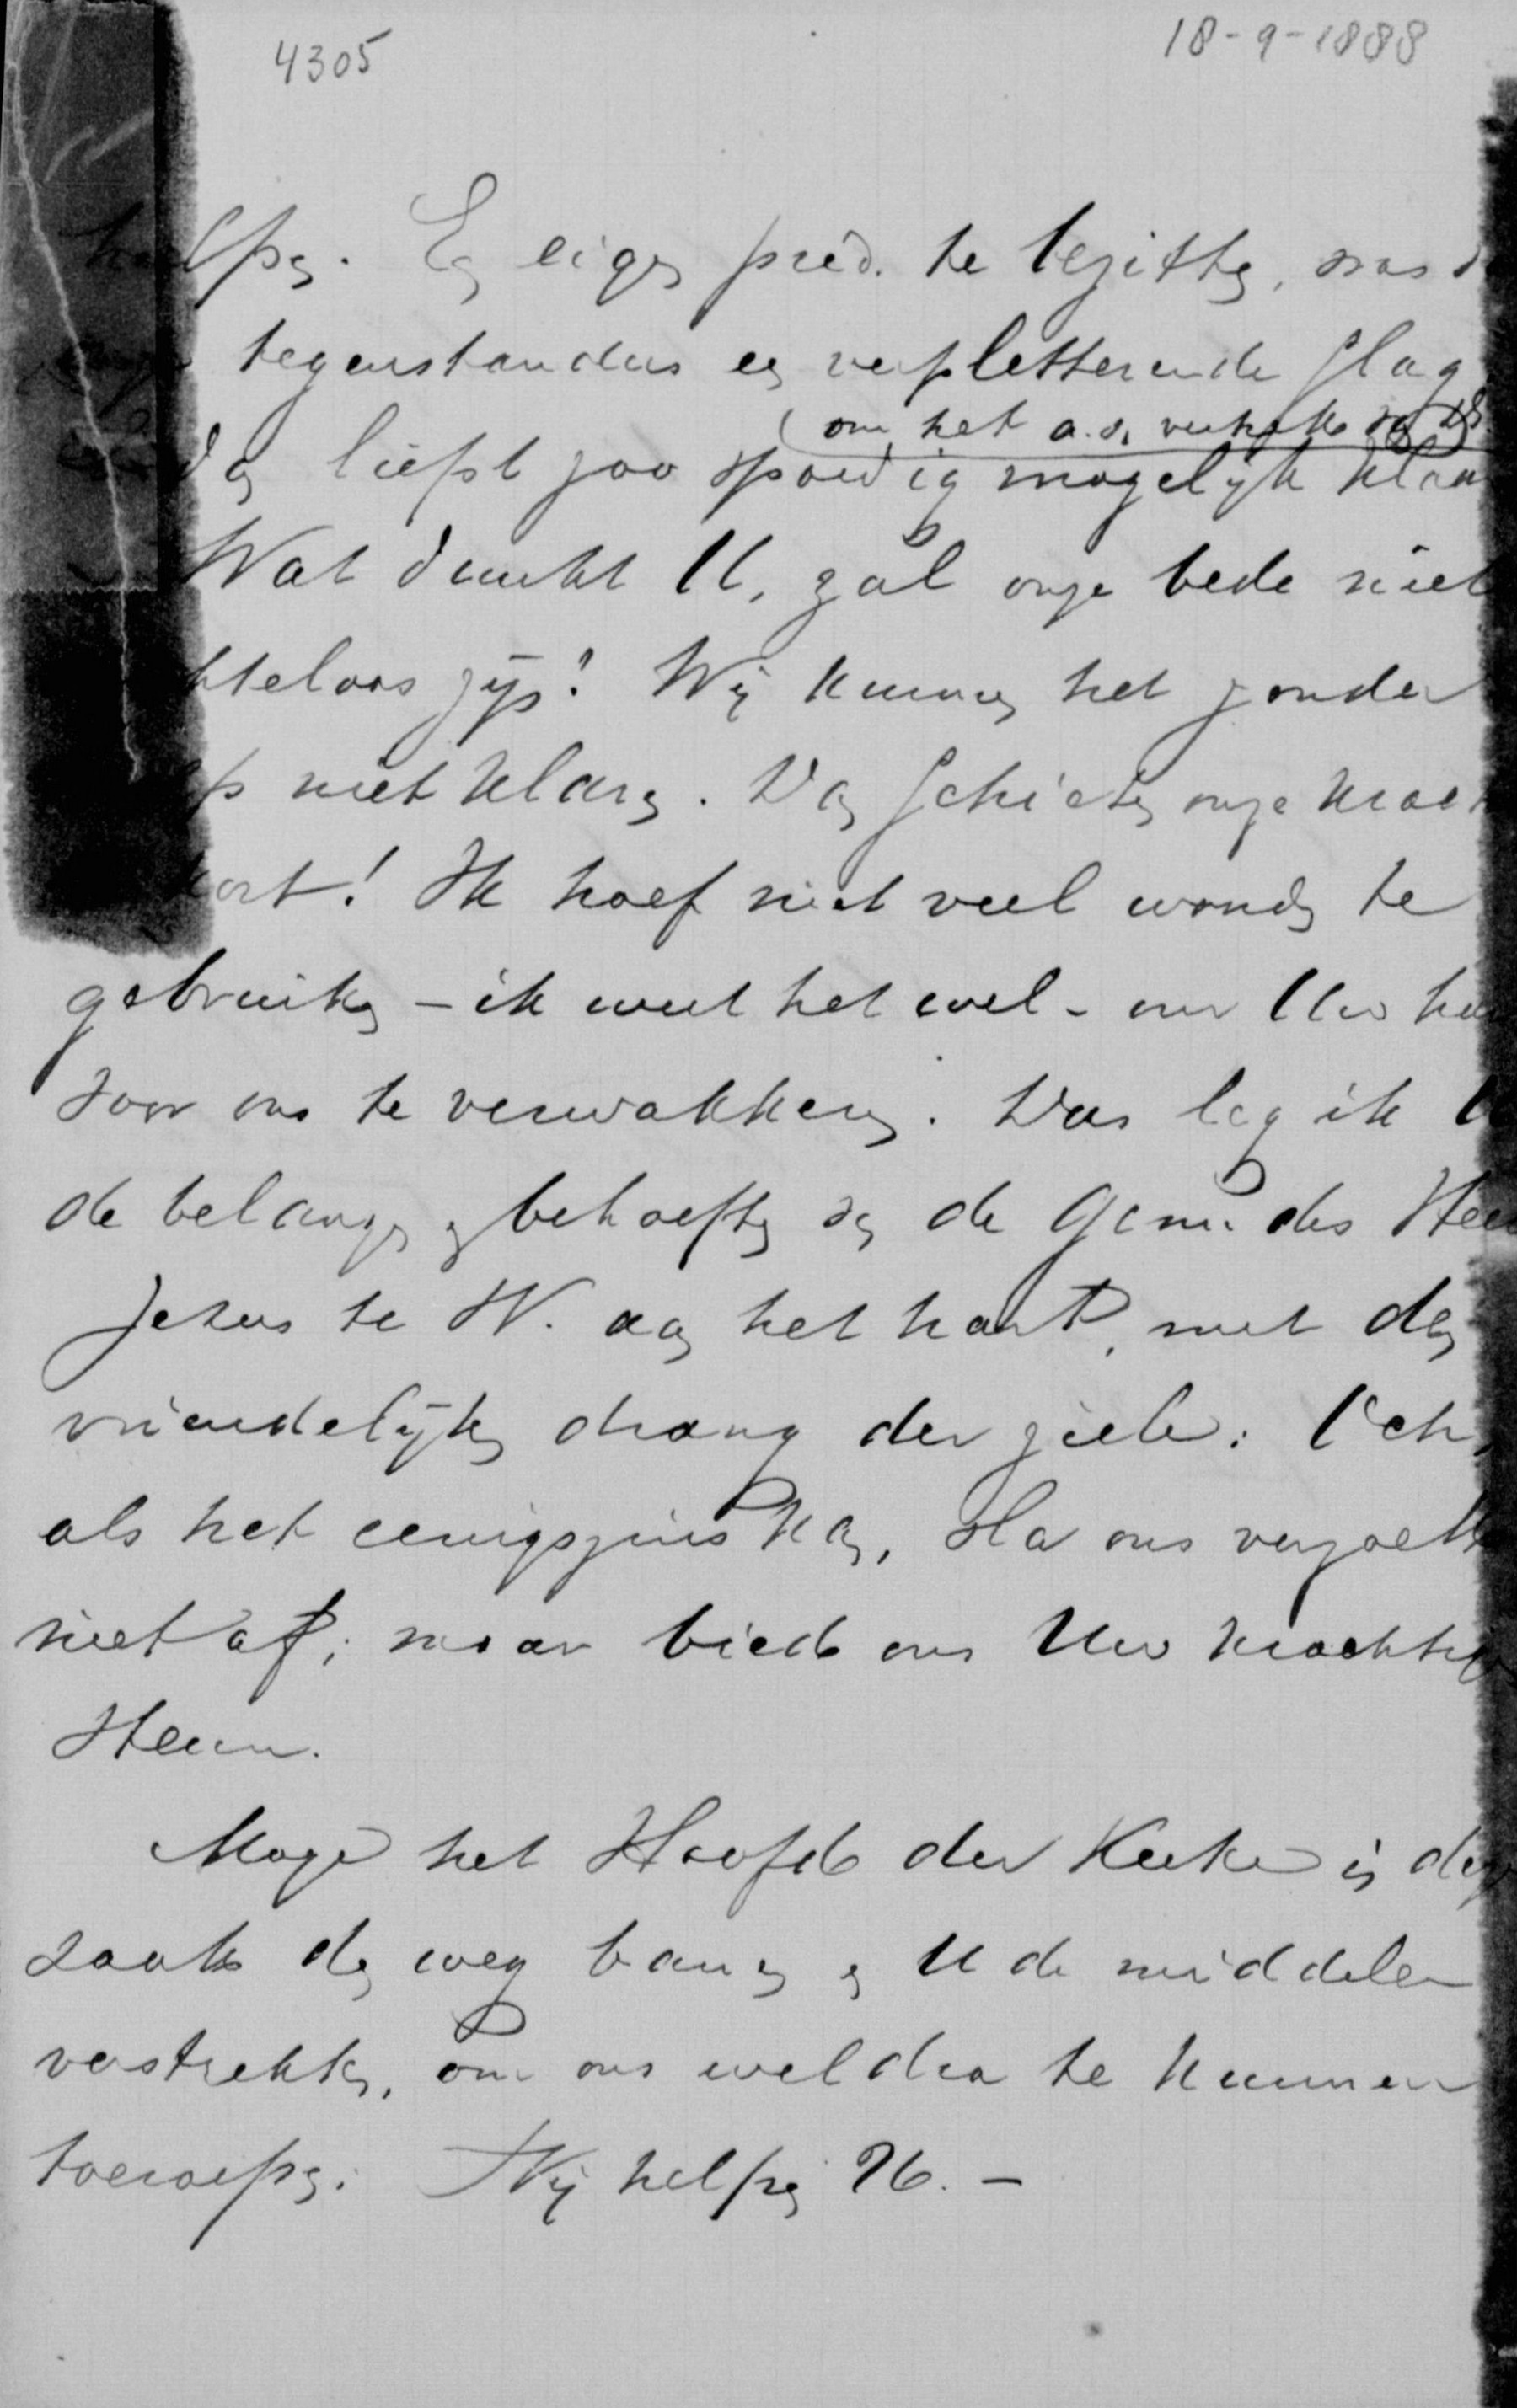 4305
18-9-1888
lpen. Een eigen pred. te bezitten, was d
tegenstanders een verpletterende slag
(om het a.s. vertrek van Ds.
Dan liefst zoo spoedig mogelijk klaar
Wat dunkt U, zal onze bede niet
hteloos zijn? Wij kunnen het zonder
p niet klaren. Dan schieten onze krach
kort! Ik hoef niet veel woorden te
gebruiken - ik weet het wel - om Uw har
voor ons te verwakkeren. Dus leg ik U
de belangen en behoeften van de Gem. des Heer
Jezus te W. aan het hart, met den
vriendelijken drang der ziele: Och,
als het eenigszins kan, sla ons verzoek
niet af; maar biedt ons Uw krachtigen
steun.
Moge het Hoofd der Kerke in deze
zaak den weg banen en U de middelen
verstrekken, om ons weldra te kunnen
toeroepen: Wij helpen U. -